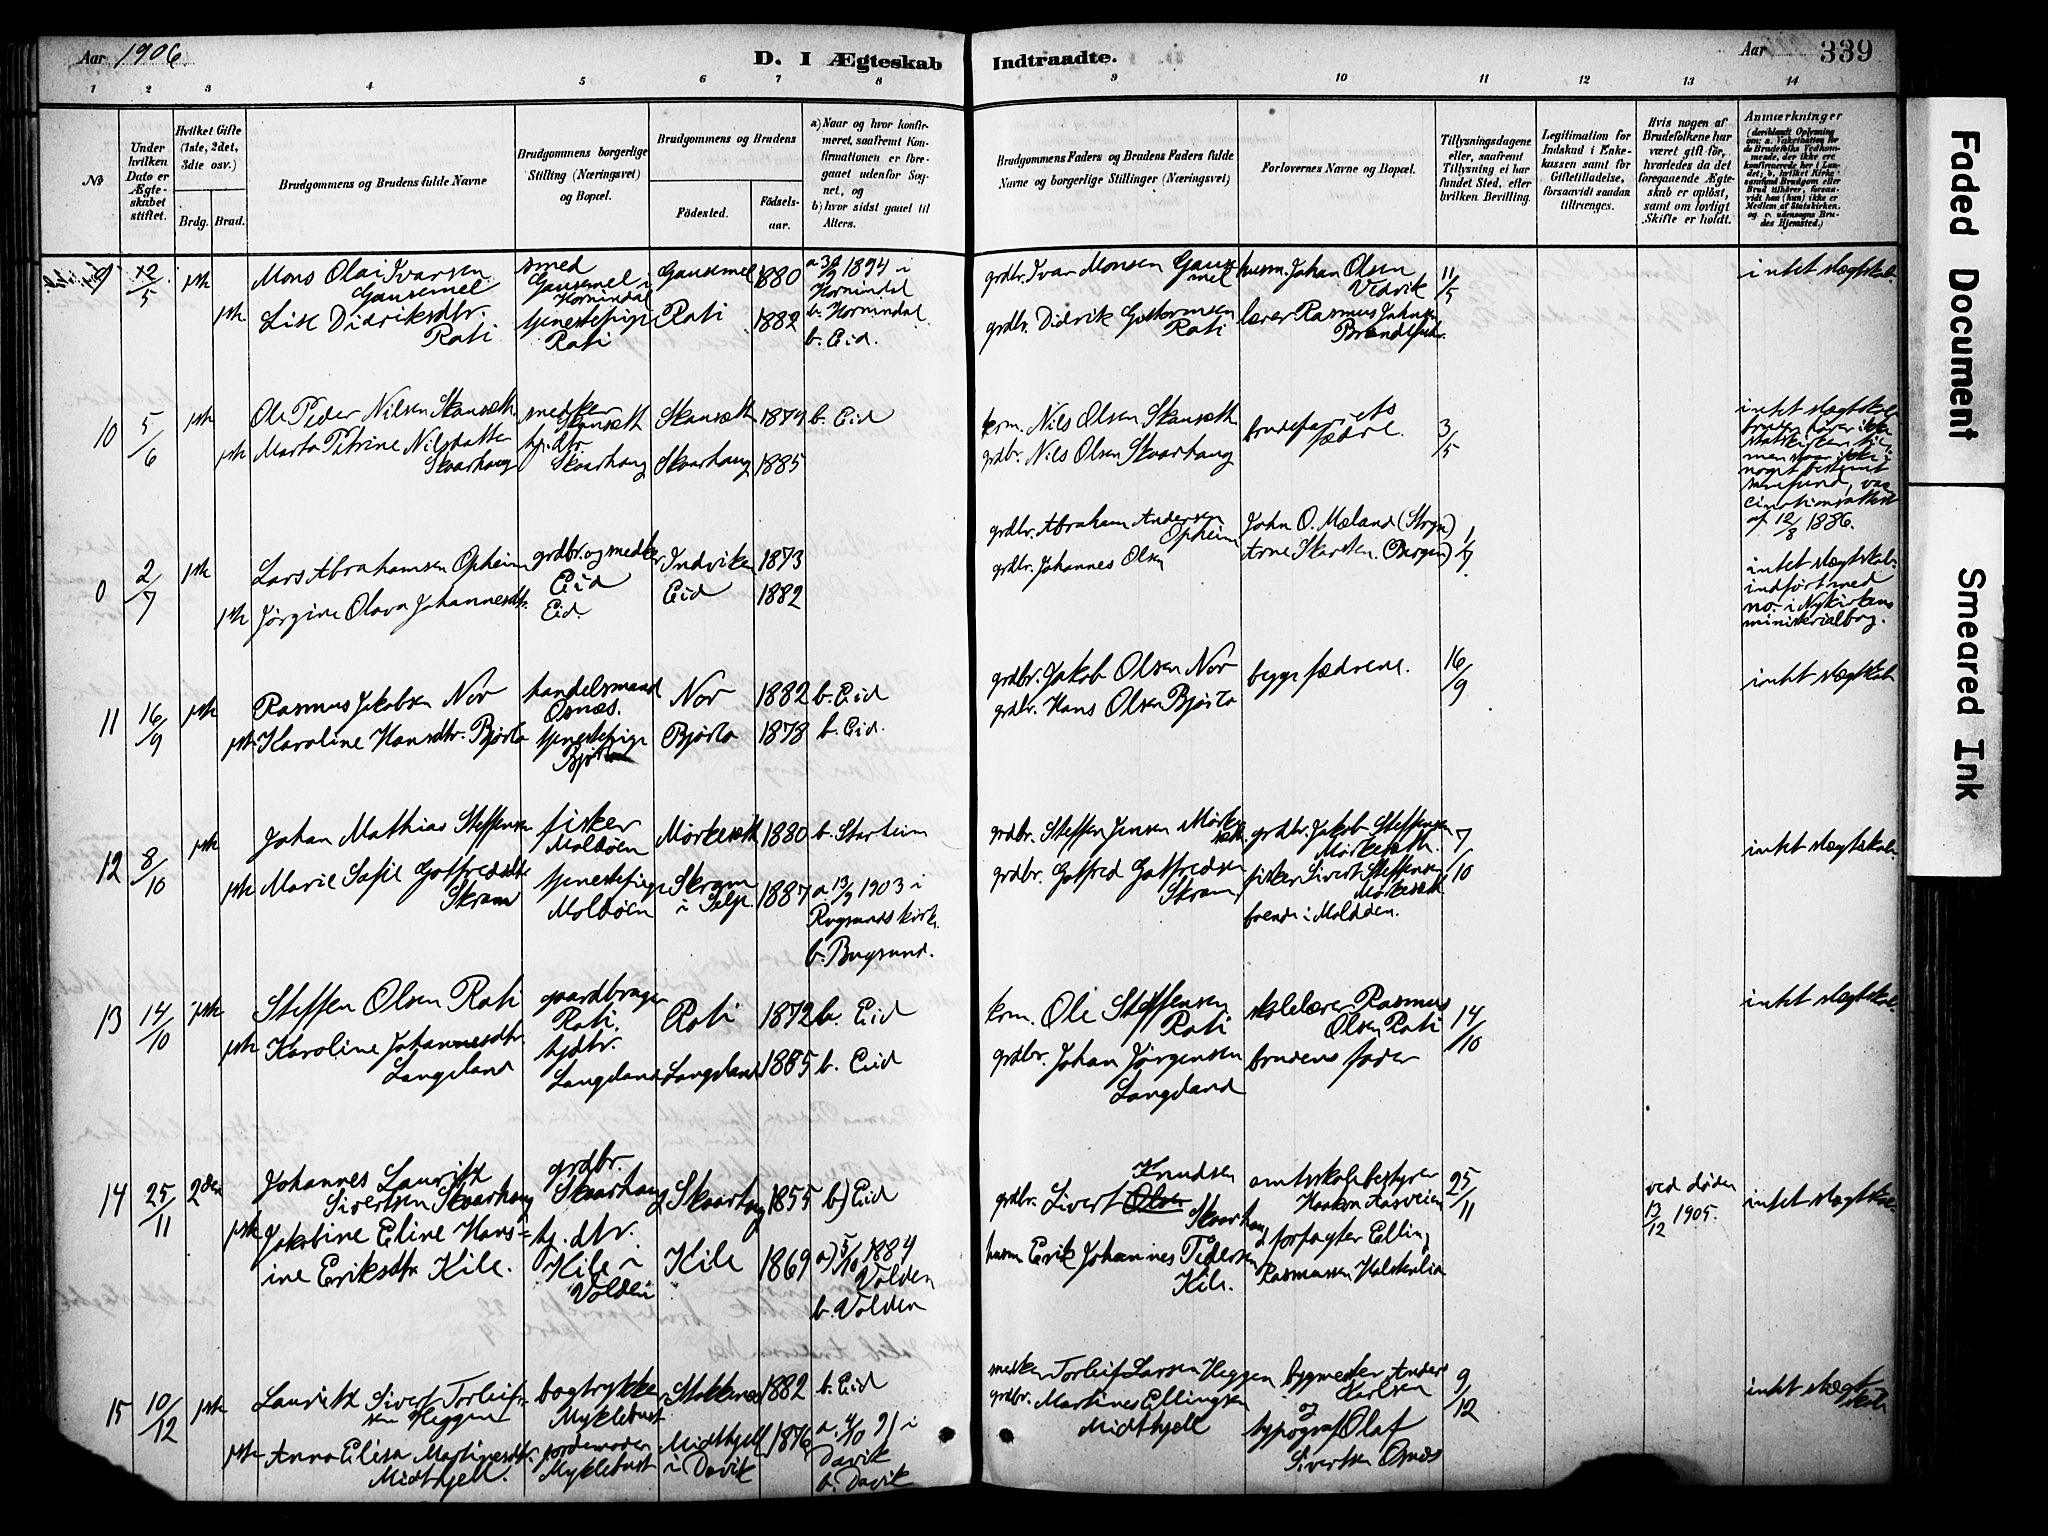 Aar 1906.
D. I Ægteskab Indtraadte.
Aar 339
1 2 3 4 5 6 7 8 9 10 11 12 13 14
No
Under hvilken Dato er Ægteskabet stiftet.
Hvilket Gifte (1ste, 2det, 3die osv.)
Brdg. Brud.
Brudgommens og Brudens fulde Navne
Brudgommens borgerlige Stilling (Næringsvei) og Bopæl.
Brudgommens og Brudens
Fødested.
Fødselsaar.
a) Naar og hvor konfirmeret, saafremt Konfirmationen er foregaaet udenfor Sognet, og
b) hvor sidst gaaet til Alters.
Brudgommens Faders og Brudens Faders fulde Navne og borgerlige Stillinger (Næringsvei)
Forlovernes Navne og Bopæl.
Tillysningsdagene eller, saafremt Tillysning ei har fundet Sted, efter hvilken Bevilling.
Legitimation for Indskud i Enkekassen samt for Giftetilladelse, forsaavidt saadan tiltrænges.
Hvis nogen af Brudefolkene har været gift før, hvorledes da det foregaaende Ægteskab er opløst, samt om lovligt Skifte er holdt.
Anmærkninger
(deriblandt Oplysning om: a. Vakcination for de Brudefolks Vedkommende, der ikke ere konfirmerede her i Landet; b. hvilket Kirkesamfund Brudgom eller Brud tilhører, forsaavidt han (hun) ikke er Medlem af Statskirken, og c. udensogns Brudes Hjemsted.)
9 12/5 1ste Mons Olai Ivarsen Gausemel smed Gausemel i Hornindal Gausemel 1880 1894 i Hornindal b. Hornindal grdbr. Ivar Monsen Gausemel husm. Johan Olsen Vedvik 11/5 intet slægtskab.
1ste Lise Didriksdtr. Roti tjenestepige Roti Roti 1882 b. Eid. grdbr. Didrik Roti lærer Rasmus Johnsen
10 5/6 1ste Ole Peder Nilsen Skansæth snedker Skansæth Skansæth 1879 b. Eid krm. Nils Olsen Skansæth brudeparrets fædre. 3/5 intet slægtskab bruden hører ikke statskirken til, men staar ikke i noget bestemt samfund, vaccinationsattest af 12/8 1886.
1ste Marta Petrine Nilsdatter Skvarhaug hj. dtr. Skvarhaug Skaarhaug 1885 grdbr. Nils Olsen Skvarhaug
0 2/7 1ste Lars Abrahamsen Opheim grdbr. og snedker Eid Indviken 1873 grdbr. Abraham Andersen Opheim John O. Mæland (Stryn) 1/7 intet slægtskab. indført med no. i Nykirkens ministerialbog.
1ste Jørgine Olava Johannesdtr. Eid. Eid 1882 grdbr. Johannes Olsen Arne Skarsten (Bergen)
11 16/9 1ste Rasmus Jakobsen Nor handelsmand Osnæs. Nor 1882 b. Eid grdbr. Jakob Olsen Nor begge fædrene. 16/9 intet slægtskab
1ste Karoline Hansdtr. Bjørlo tjenestepige Bjørlo Bjørlo 1878 b. Eid. grdbr. Hans Olsen Bjørlo
12 8/10 1ste Johan Mathias Steffensen fisker Moldøen Mørkesæth 1880 b. Starheim grdbr. Steffen Jensen Mørkesæth grdbr. Jakob Steffensen Mørkesæth. 7/10 intet slægtskab.
1ste Marie Sofie Gotfredsdtr Skram tjenestepige Moldøen Skram i Selje 1887 a. 13/9 1903 i Rugsunds kirke b. Rugsund. grdbr. Gotfred Gotfredsen Skram fisker Sivert Steffensen Mørkesæth boende i Moldøen.
13 14/10 1ste Steffen Olsen Roti gaardbruger Roti. Roti 1872 b. Eid krm. Ole Steffensen Roti skolelærer Rasmus Olsen Roti 14/10 intet slægtskab.
1ste Karoline Johannesdtr. Langeland hjdtr. Langeland Langeland 1885 b. Eid grdbr. Johan Jørgensen Langeland brudens fader
14 25/11 2den Johannes Lauritz Sivertsen Skvarhaug grdbr. Skaarhaug Skaarhaug 1855 b) Eid grdbr. Sivert Knudsen Skaarhaug amtsskolebestyrer Haakon Aasveien 25/11 ved døden 13/12 1905. intet slægtskab.
1ste Jakobine Eline Hansine Eriksdtr Kile. hj. dtr. Kile i Volden Kile 1869 a) 5/10 1884 Volden b. Volden husm Erik Johannes Pedersen Kile. forpagter Elling Rasmussen
15 10/12 1ste Lauritz Sivert Torleifsen Heggen bogtrykker Myklebust Stokkenes 1882 b. Eid snedker Torleif Larsen Heggen bygmester Anders Karlsen og 9/12 intet slægtskab
1ste Anna Elisa Martinesdtr. Midthjell. jordemoder Myklebust Midthjell i Davik 1876 a. 4/10 91 i Davik b. Davik grdbr. Martines Ellingsen Midthjell typograf Olaf Sivertsen Osnes
Faded Document
Smeared Ink